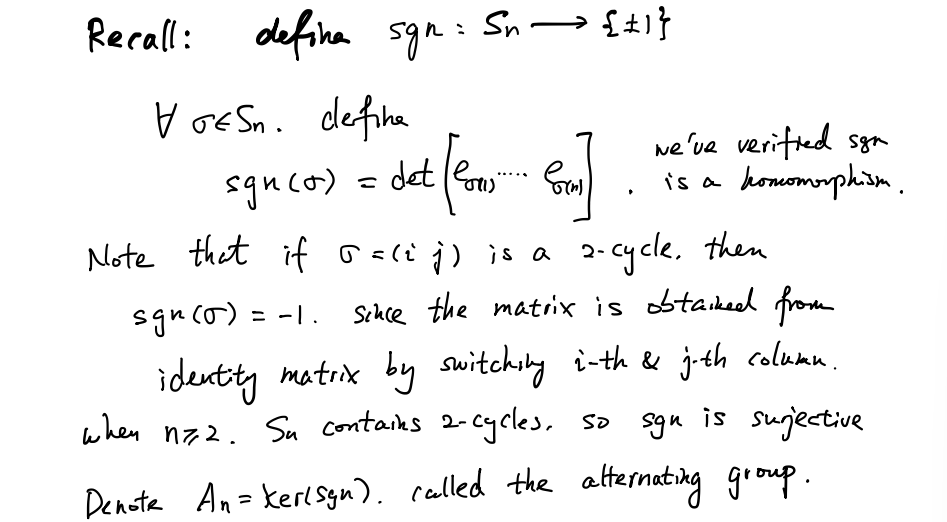 Recall: define sgn : Sn ⟶ {±1}
∀ σ∈Sn. define
sgn(σ) = det [e_σ(1) ..... e_σ(n)] . we've verified sgn is a homomorphism.
Note that if σ = (i j) is a 2-cycle. then
sgn(σ) = -1. since the matrix is obtained from
identity matrix by switching i-th & j-th column.
when n⩾2. Sn contains 2-cycles, so sgn is surjective
Denote An = ker(sgn). called the alternating group.